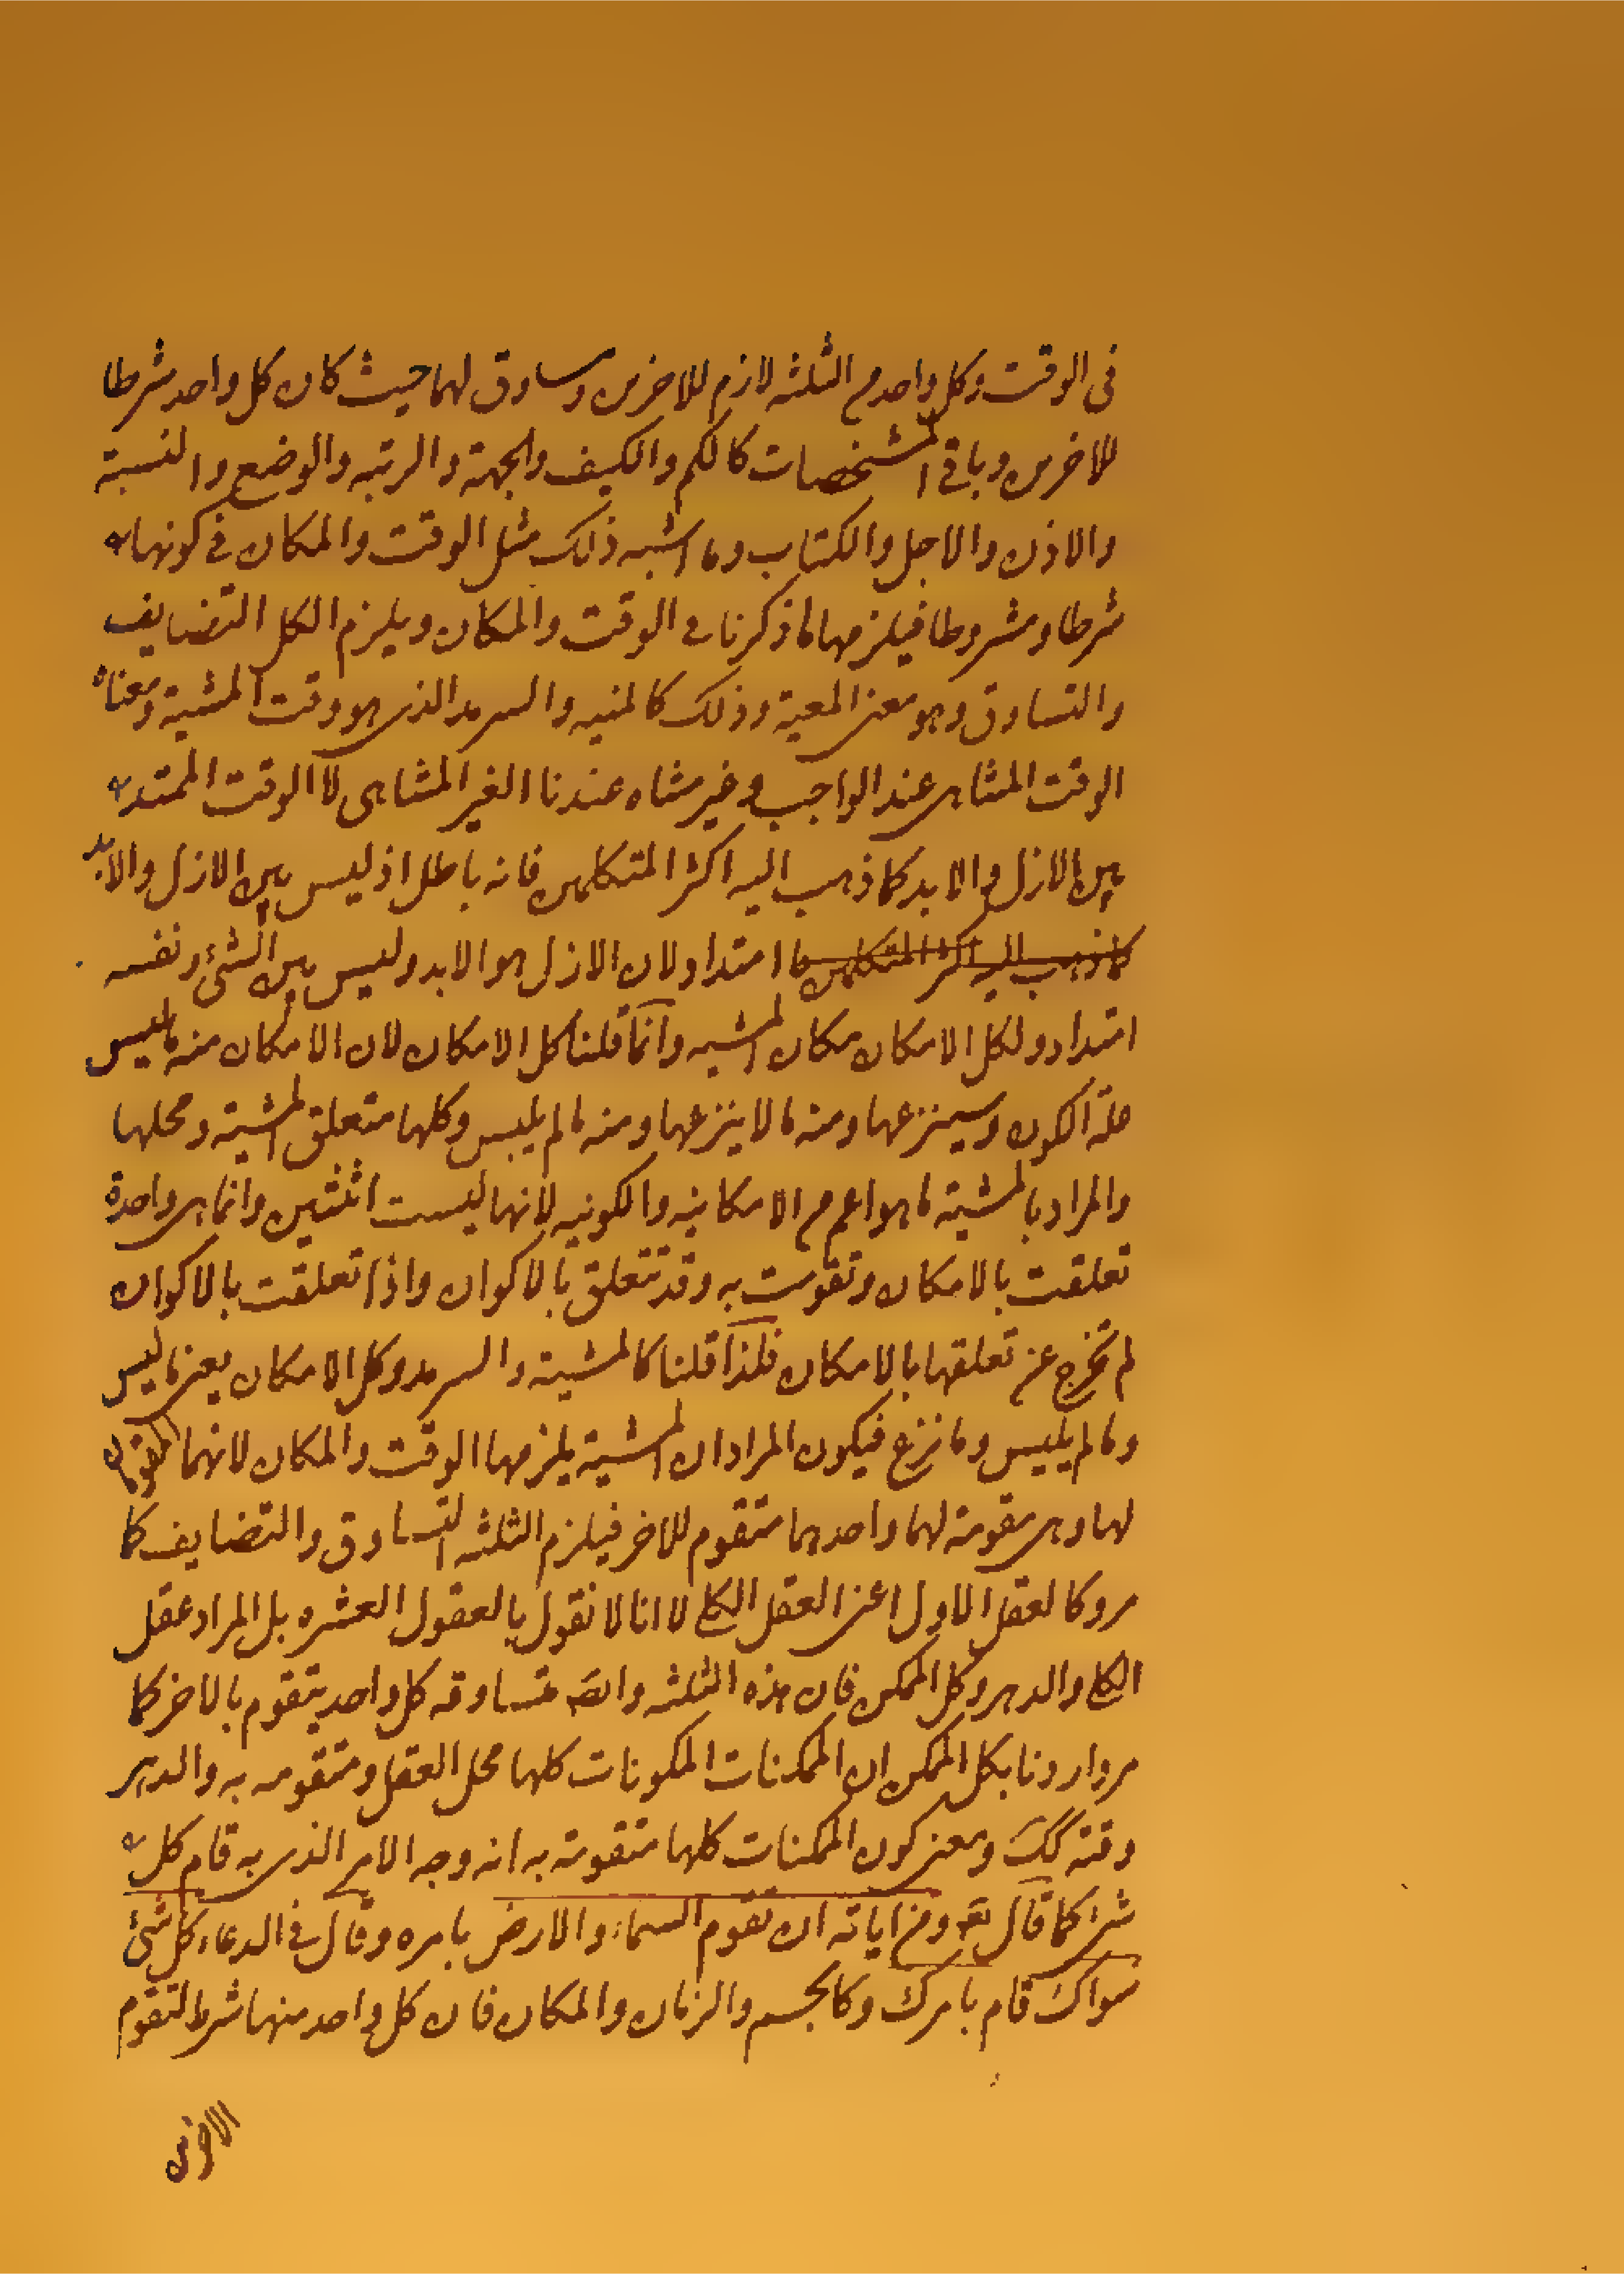 فى الوقت وكل واحد من الثلثه لازم للاخرين ومساوق لهما حيث كان كل واحد شرطا
للاخرين وباقى المشخصات كالكم والكيف والجهة والرتبه والوضع والنسبة
والاذن والاجل والكتاب وما اشبه ذلك مثل الوقت والمكان فى كونها
شرطا ومشروطا فيلزمها ما ذكرنا فى الوقت والمكان ويلزم الكل التضايف
والتساوق وهو معنى المعية وذلك كالمشيه والسرمد الذى هو وقت المشية ومعناه
الوقت المتناهى عند الواجب وغير متناه عندنا الغير المتناهى لا الوقت الممتد
بين الازل والابد كما ذهب اليه اكثر المتكلمين فانه باطل اذ ليس بين الازل والابد
كما ذهب اليه اكثر المتكلمين ما امتداد لان الازل هو الابد وليس بين الشئ ونفسه
امتداد ولكل الامكان مكان المشيه وانما قلنا كل الامكان لان الامكان منه ما لبس
حلة الكون وسينزعها ومنه ما لا ينزعها ومنه ما لم يلبس وكلها متعلق المشية ومحلها
والمراد بالمشية ما هو اعم من الامكانيه والكونيه لانها ليست اثنتين وانما هى واحدة
تعلقت بالامكان وتقومت به وقد تتعلق بالاكوان واذا تعلقت بالاكوان
لم تخرج عن تعلقها بالامكان فلذا قلنا كالمشية والسرمد وكل الامكان يعنى ما لبس
وما لم يلبس وما نزع فيكون المراد ان المشية يلزمها الوقت والمكان لانهما مقومان
لها وهى مقومة لهما واحدهما متقوم للاخر فيلزم الثلثه التساوق والتضايف كما
مر وكالعقل الاول اعنى العقل الكلى لا انا لا نقول بالعقول العشره بل المراد عقل
الكل والدهر وكل الممكن فان هذه الثلثه ايضا متساوقه كل واحد يتقوم بالاخر كما
مر واردنا بكل الممكن ان الممكنات المكونات كلها محل العقل ومتقومه به والدهر
وقته كك ومعنى كون الممكنات كلها متقومة به انه وجه الامر الذى به قام كل
شئ كما قال تع ومن اياته ان تقوم السماء والارض بامره وقال فى الدعاء كل شئ
سواك قام بامرك وكالجسم والزمان والمكان فان كل واحد منها شرط لتقوم